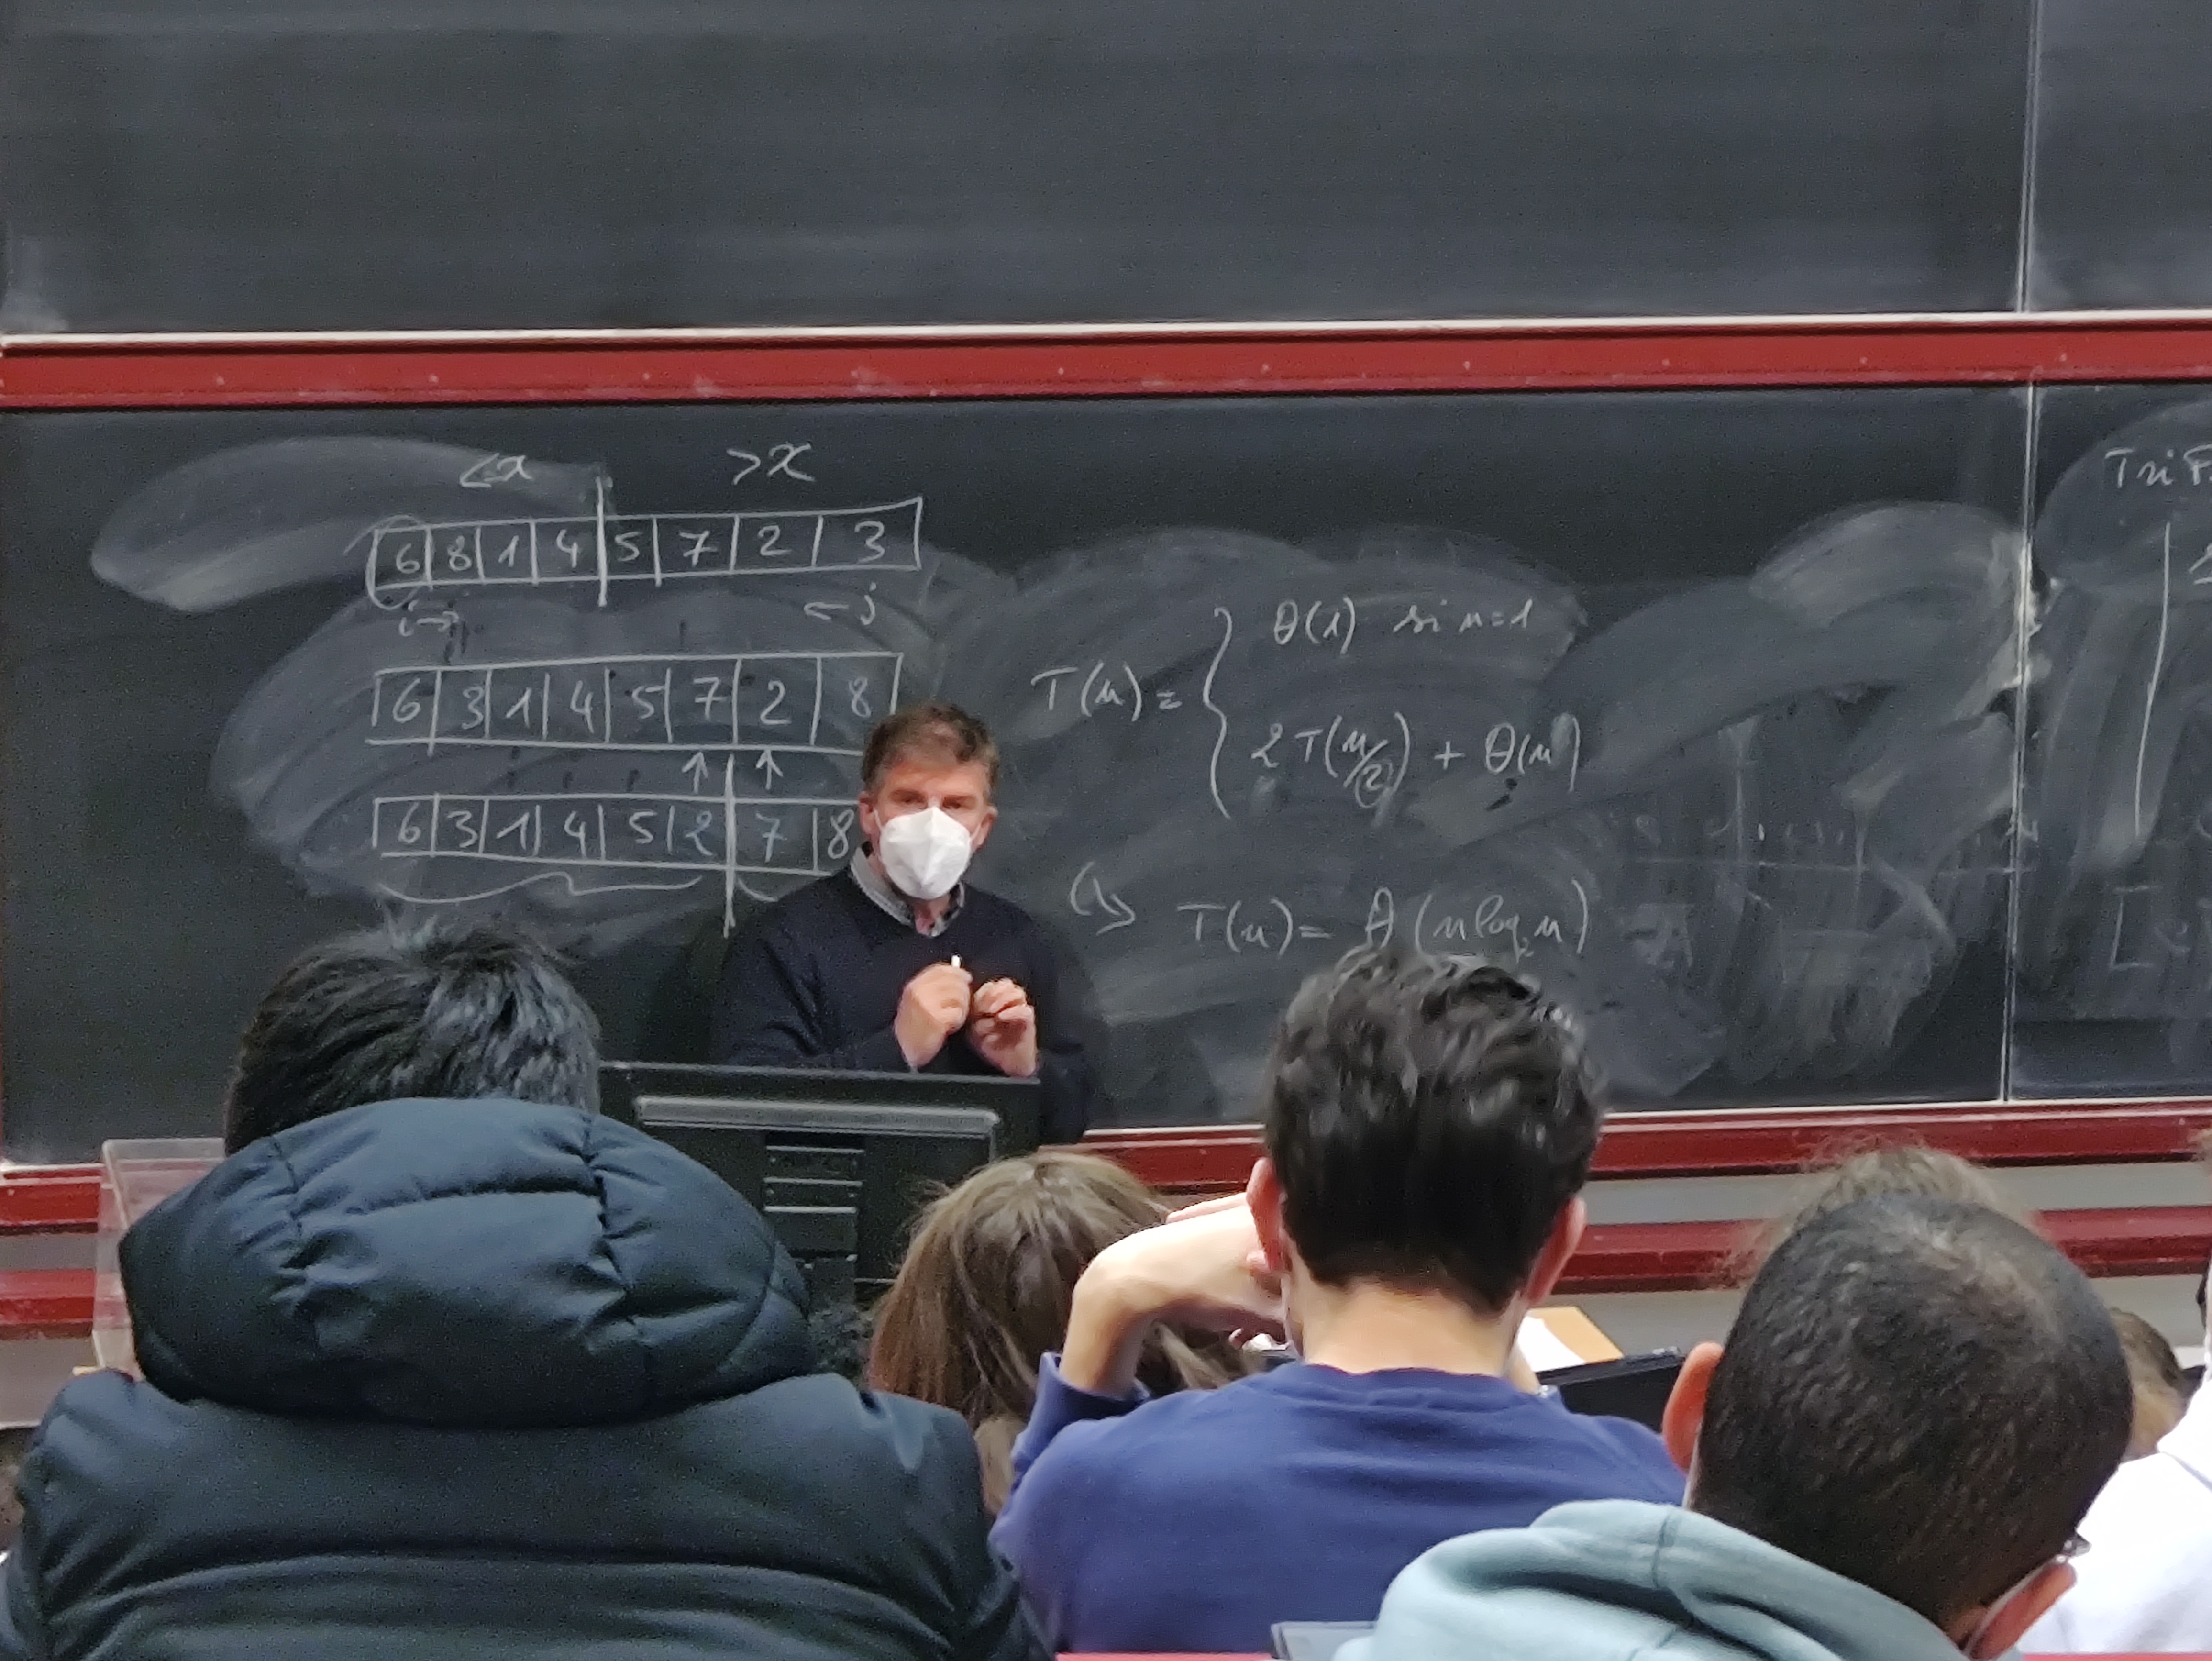 <x >x
6 8 1 4 5 7 2 3
i→ ←j
6 3 1 4 5 7 2 8
↑ ↑
6 3 1 4 5 2 7 8
T(n) = { Θ(1) si n=1
2T(n/2) + Θ(n)
↳ T(n) = Θ(n log₂ n)
Tri